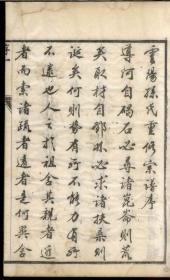 雲陽孫氏重修宗譜序
導河自碣石必尋諸崑崙則荒
矣取材自鄧林必求諸扶桑則
誕矣何則勢有所不能力有所
不逮也人之於祖舍其親者近
者而索諸疏者遠者是何異舍